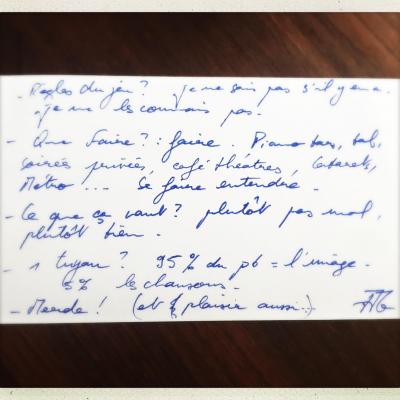 - Règles du jeu ? Je ne sais pas s'il y en a.
Je ne les connais pas.
- Que faire ? : faire. Piano bars, bal,
soirées privées, café théâtres, cabarets,
Métro ... Se faire entendre.
- Ce que ça vaut ? plutôt pas mal,
plutôt bien.
- 1 tuyau ? 95% du pb = l'image.
5% les chansons.
- Merde ! (et plaisir aussi.)